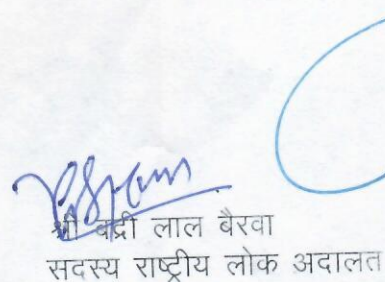 श्री बद्री लाल बैरवा
सदस्य राष्ट्रीय लोक अदालत